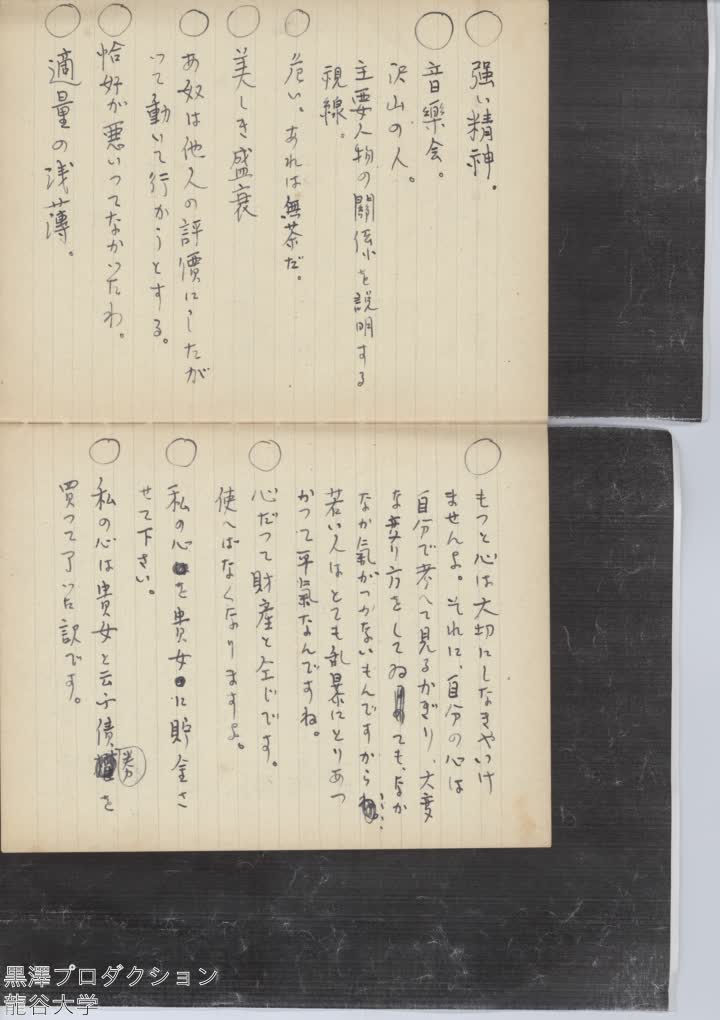 ○ 強い精神。
○ 音樂会。
沢山の人。
主要人物の関係を説明する
視線。
○ 危い。あれは無茶だ。
○ 美しき盛衰
○ あ奴は他人の評價にしたが
って動いて行かうとする。
○ 恰好が悪いつてなかつたわ。
○ 適量の浅薄。
○ もつと心は大切にしなきやいけ
ませんよ。それに、自分の心は
自分で考へて見るかぎり、大変
な やり方をしてゐ ても、なか
なか氣がつかないもんですから
若い人はとても乱暴にとりあつ
かつて平氣なんですね。
○ 心だつて財産と仝じです。
使へばなくなりますよ。
○ 私の心を貴女に貯金さ
せて下さい。
○ 私の心は貴女と云ふ債券を
買つて了つた訳です。
黒澤プロダクション
龍谷大学